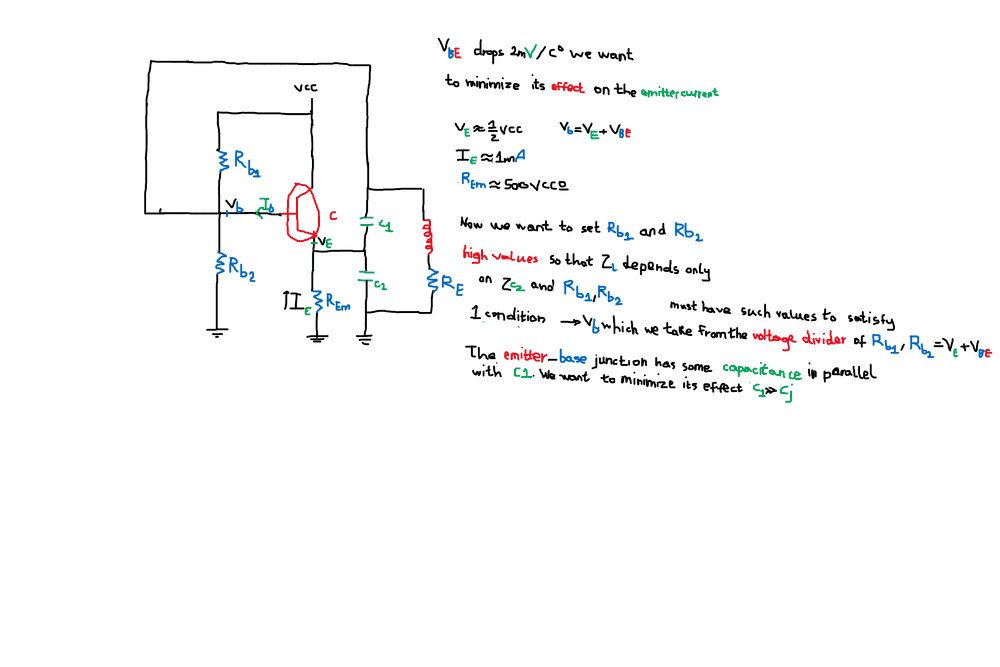 V_BE drops 2mV/C° we want
to minimize its effect on the emitter current
V_E ≈ 1/2 VCC V_b = V_E + V_BE
I_E ≈ 1mA
R_Em ≈ 500 VCC Ω
Now we want to set R_b1 and R_b2
high values so that Z_L depends only
on Z_C2 and R_b1, R_b2 must have such values to satisfy
1 condition → V_b which we take from the voltage divider of R_b1, R_b2 = V_E + V_BE
The emitter-base junction has some capacitance in parallel
with C1. We want to minimize its effect C_1 >> C_j
VCC
R_b1
V_b I_b C
C_1
V_E
R_b2
C_2
R_E
↑I_E R_Em